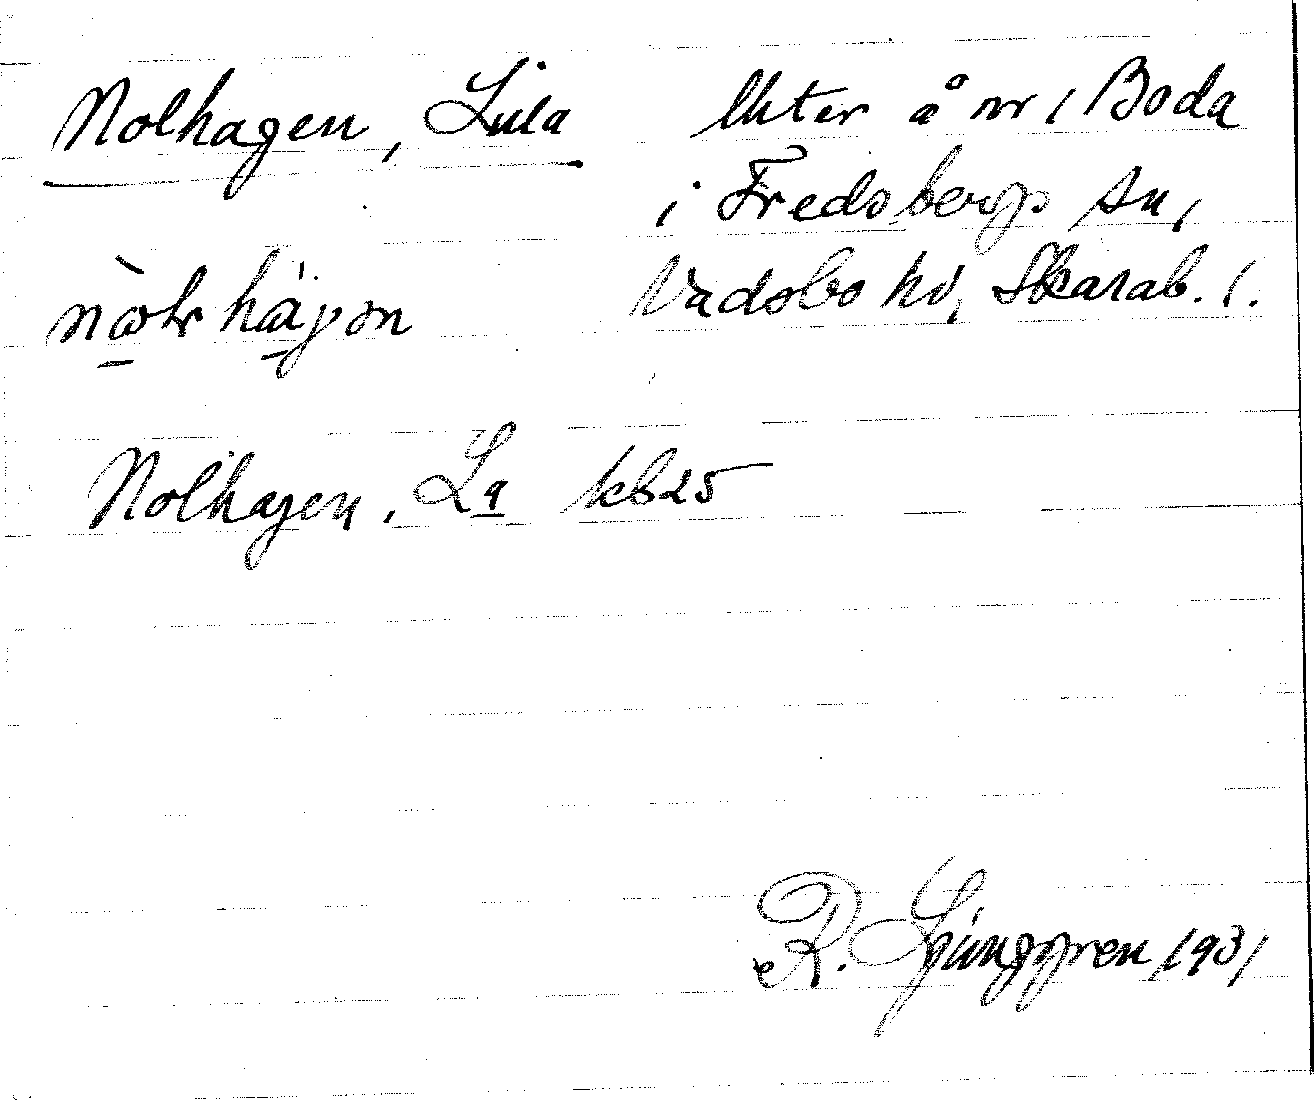 Nolhagen, Lilla
Uster å nr 1 Boda
i Fredsbergs sn,
Vadsbo hd, Skarab. l.
Nolhagen, La kb 25
R. Ljunggren 1931